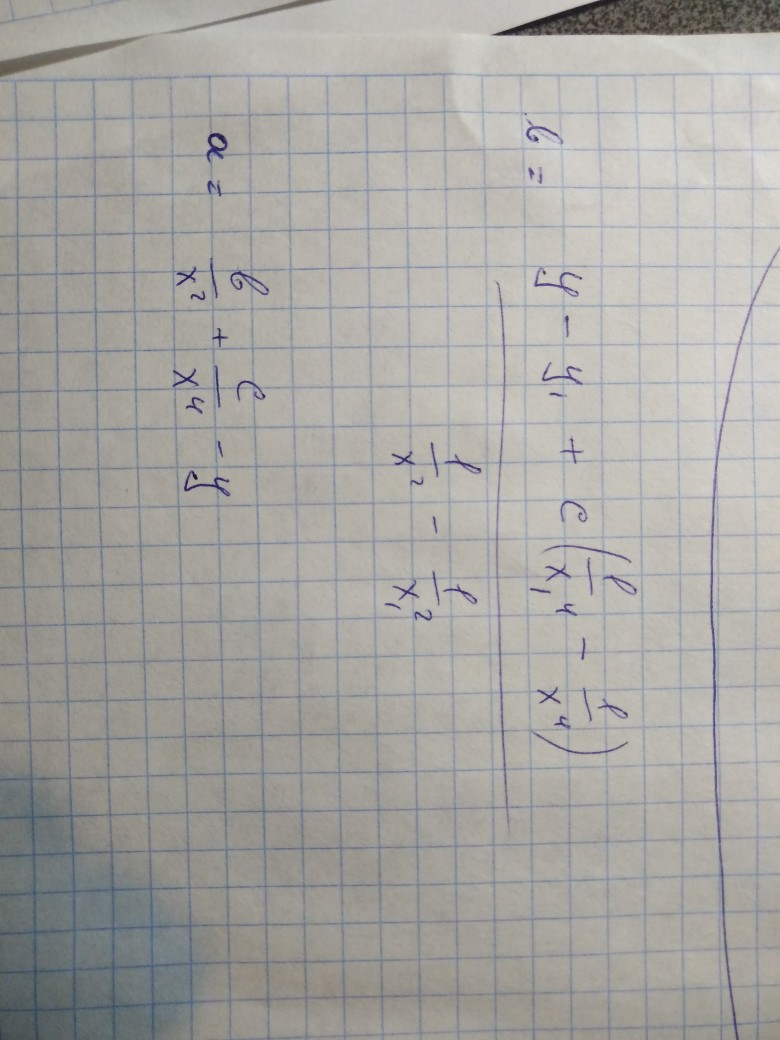 b = (y - y₁ + c(1/x₁⁴ - 1/x⁴)) / (1/x² - 1/x₁²)
a = b/x² + c/x⁴ - y